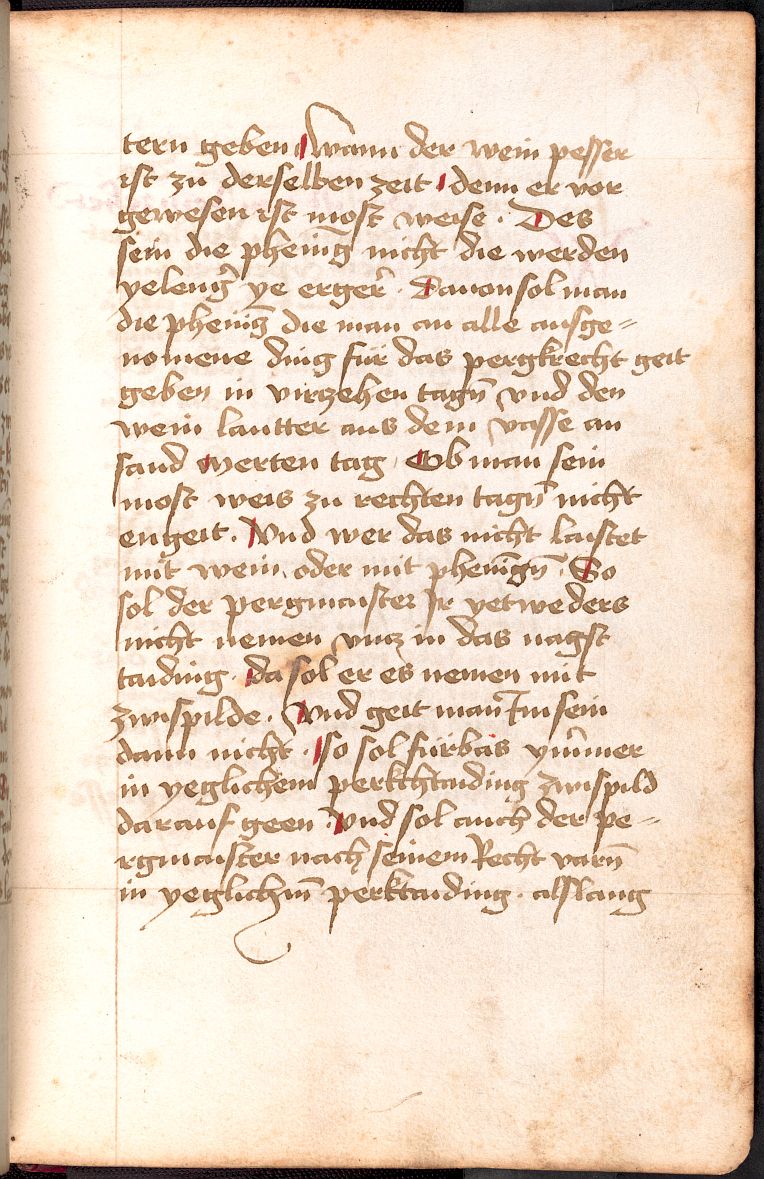 tern geben Wann der wein pesser
ist zu derselben zeit denn er vor
gewesen ist most weise . Des
sein die phenīg nicht die werden
yeleng̉ ye erger̉ . Dauon sol man
die phenīg die man an alle ausge=
nomene ding für das pergkrecht geit
geben in virzehen tagn̄ vnd den
wein lautter aus dem vasse an
sand Merten tag . Ob man sein
most weis zu rechten tagn̄ nicht
engeit . Vnd wer das nicht laistet
mit wein oder mit phenīgn̄ . So
sol der pergmaister Ir yetweders
nicht nemen vncz in das nagst
taiding . da sol er es nemen mit
zwispilde . Vnd geit man Im sein
dann nicht . so sol fürbas ym̄mer
in yeglichem perkchtaiding zwispild
darauf geen . Vnd sol auch der pe=
rgmaister nach seinem Recht varn̄
in yeglichm̄ perktaiding . alslang